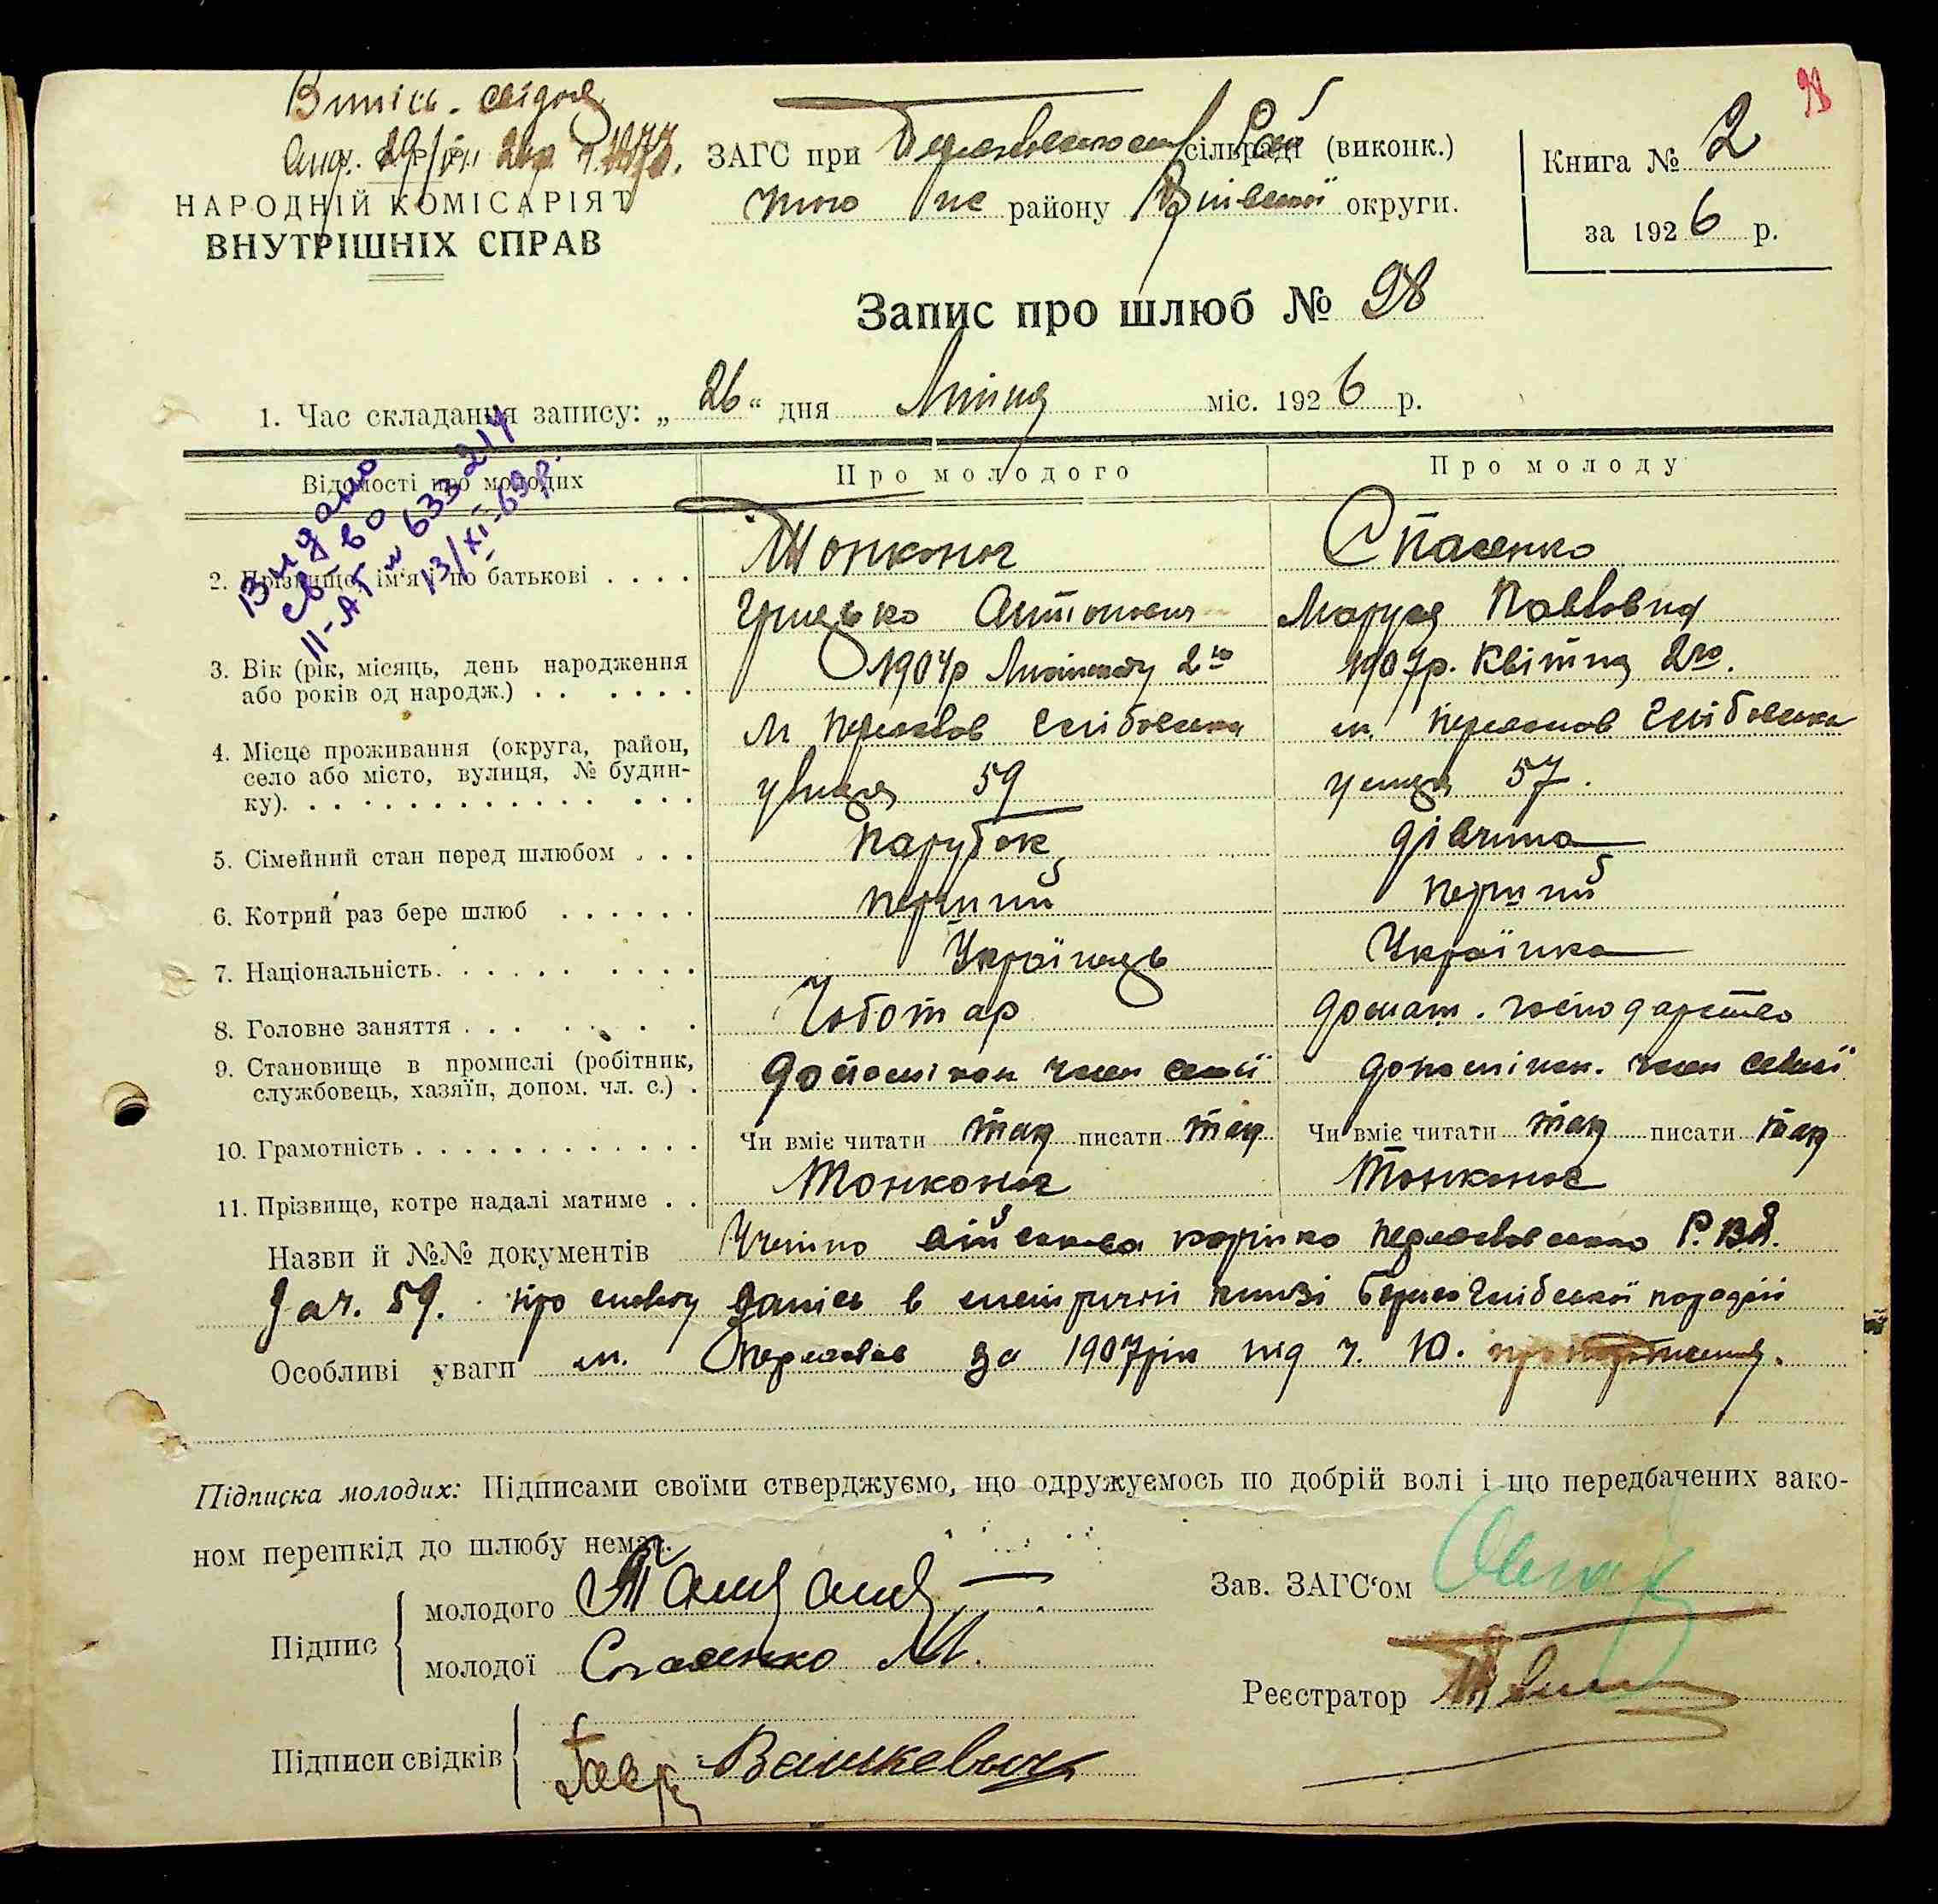 98
ЗАГС при сільраді (виконк.)
Книга № 2
НАРОДНІЙ КОМІСАРІЯТ
ВНУТРІШНІХ СПРАВ
району округи.
за 1926 р.
Запис про шлюб № 98
1. Час складання запису: „26“ дня Липця міс. 1926 р.
Видано
св-во
II-АГ № 633214
13/XI-69р.
Відомості про молодих Про молодого Про молоду
2. Прізвище, ім'я, по батькові . . . . Тонконог Спасенко
Грицько Антонович Маруся Павловна
3. Вік (рік, місяць, день народження 1904р Листопаду 2го 1907р. Квітня 2го.
або років од народж.) . . . . . .
4. Місце проживання (округа, район, м Переяслов Глібовська м. Переяслов Глібовська
село або місто, вулиця, № будин- улиця 59 улиця 57.
ку). . . . . . . . . . . . . . . .
5. Сімейний стан перед шлюбом . . . Парубок дівчина
6. Котрий раз бере шлюб . . . . . . перший перший
7. Національність. . . . . . . . . . Українець Українка
8. Головне заняття . . . . . . . . Чоботар домаш. господарство
9. Становище в промислі (робітник, допоміжон член семії допоміжн. член семії
службовець, хазяїн, допом. чл. с.) .
10. Грамотність . . . . . . . . . . . . . Чи вміє читати так писати так Чи вміє читати так писати так
11. Прізвище, котре надалі матиме . . Тонконог Тонконог
Назви й №№ документів Учотно військова картка Переяславського Р.В.
за ч. 59. про запись в метричній книзі Борисоглібської парафії
Особливі уваги м. Переяслав за 1907рік під ч. 10.
Підписка молодих: Підписами своїми стверджуємо, що одружуємось по добрій волі і що передбачених зако-
ном перешкід до шлюбу нема.
Підпис
молодого
молодої Спасенко М.
Зав. ЗАГС'ом
Реєстратор
Підписи свідків Вашкевич